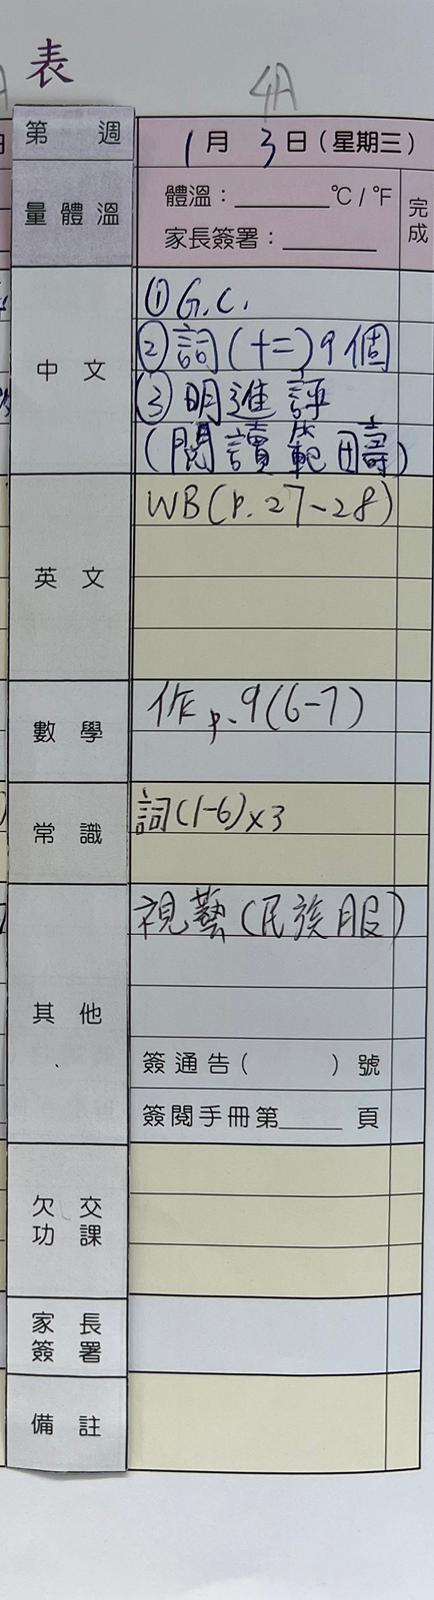 表
4A
第 週
1月 3日(星期三)
量體溫
體溫:________℃/℉
家長簽署:________
完成
中文
①G.C.
②詞(十二)9個
③明進評
(閱讀範疇)
英文
WB(p.27-28)
數學
作p.9(6-7)
常識
詞(1-6)x3
其他
視藝(民族服)
簽通告( )號
簽閱手冊第_____頁
欠交功課
家長簽署
備註